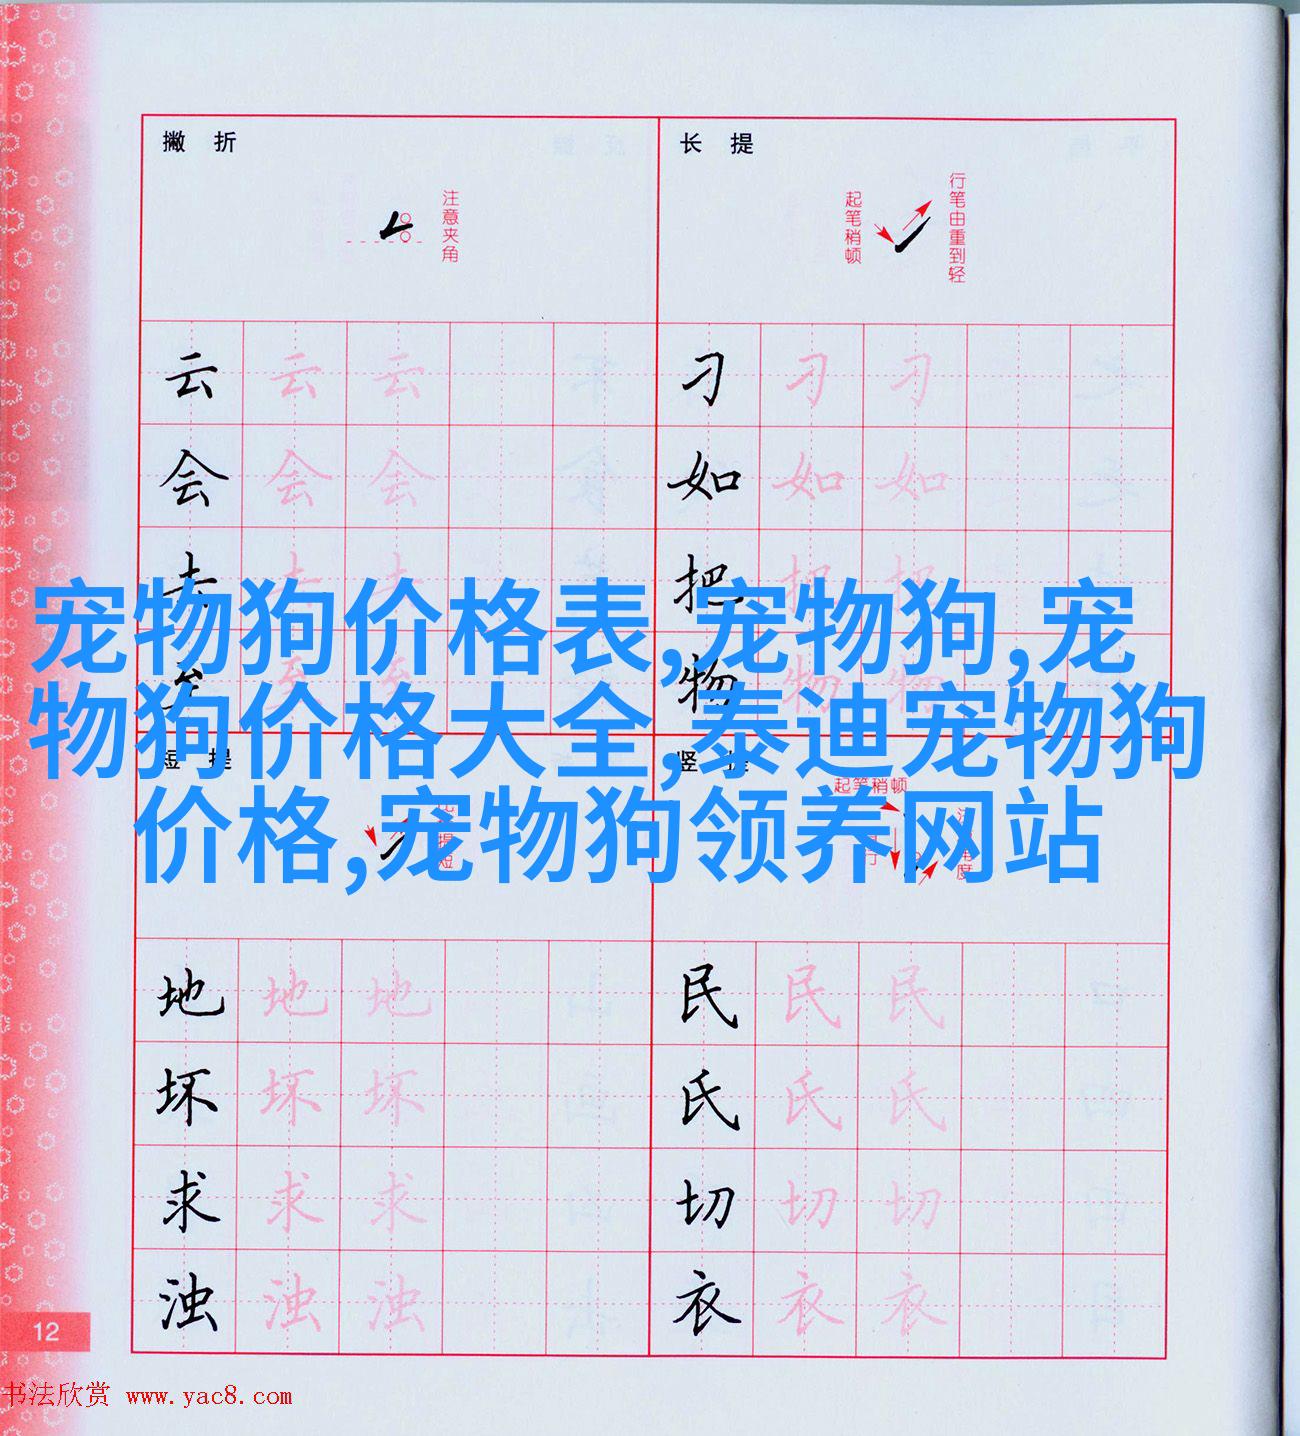 撇 折
长 提
注意夹角
起笔稍顿
行笔由重到轻
云 云 云
刁 刁 刁
会 会 会
如 如 如
去 去 去
把 把 把
宠物狗价格表,宠物狗,宠
至 至 至
物 物 物
物狗价格大全,泰迪宠物狗
短 提
竖 提
起笔稍顿
价格,宠物狗领养网站
地 地 地
民 民 民
坏 坏 坏
氏 氏 氏
求 求 求
切 切 切
浊 浊 浊
衣 衣 衣
12
书法欣赏 www.yac8.com